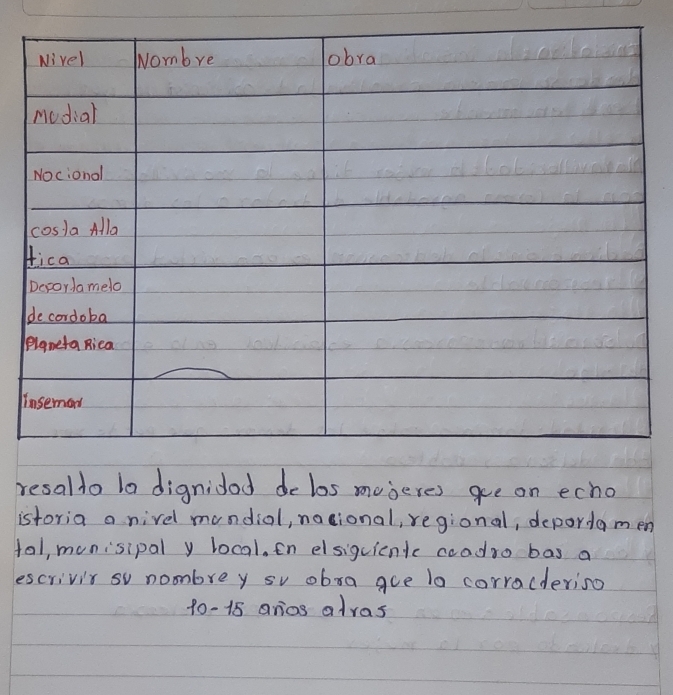 Nivel Nombre Obra
Mudial
Nacional
costa Atla
tica
Departameto
de cordoba
Planeta Rica
insemar
resalto la dignidad de los mujeres que an echo
istoria a nivel mundial, nacional, regional, departamen
tal, munisipal y local. En el siguiente cuadro bas a
escrivir su nombre y su obra que la carracteriso
10-15 años atras